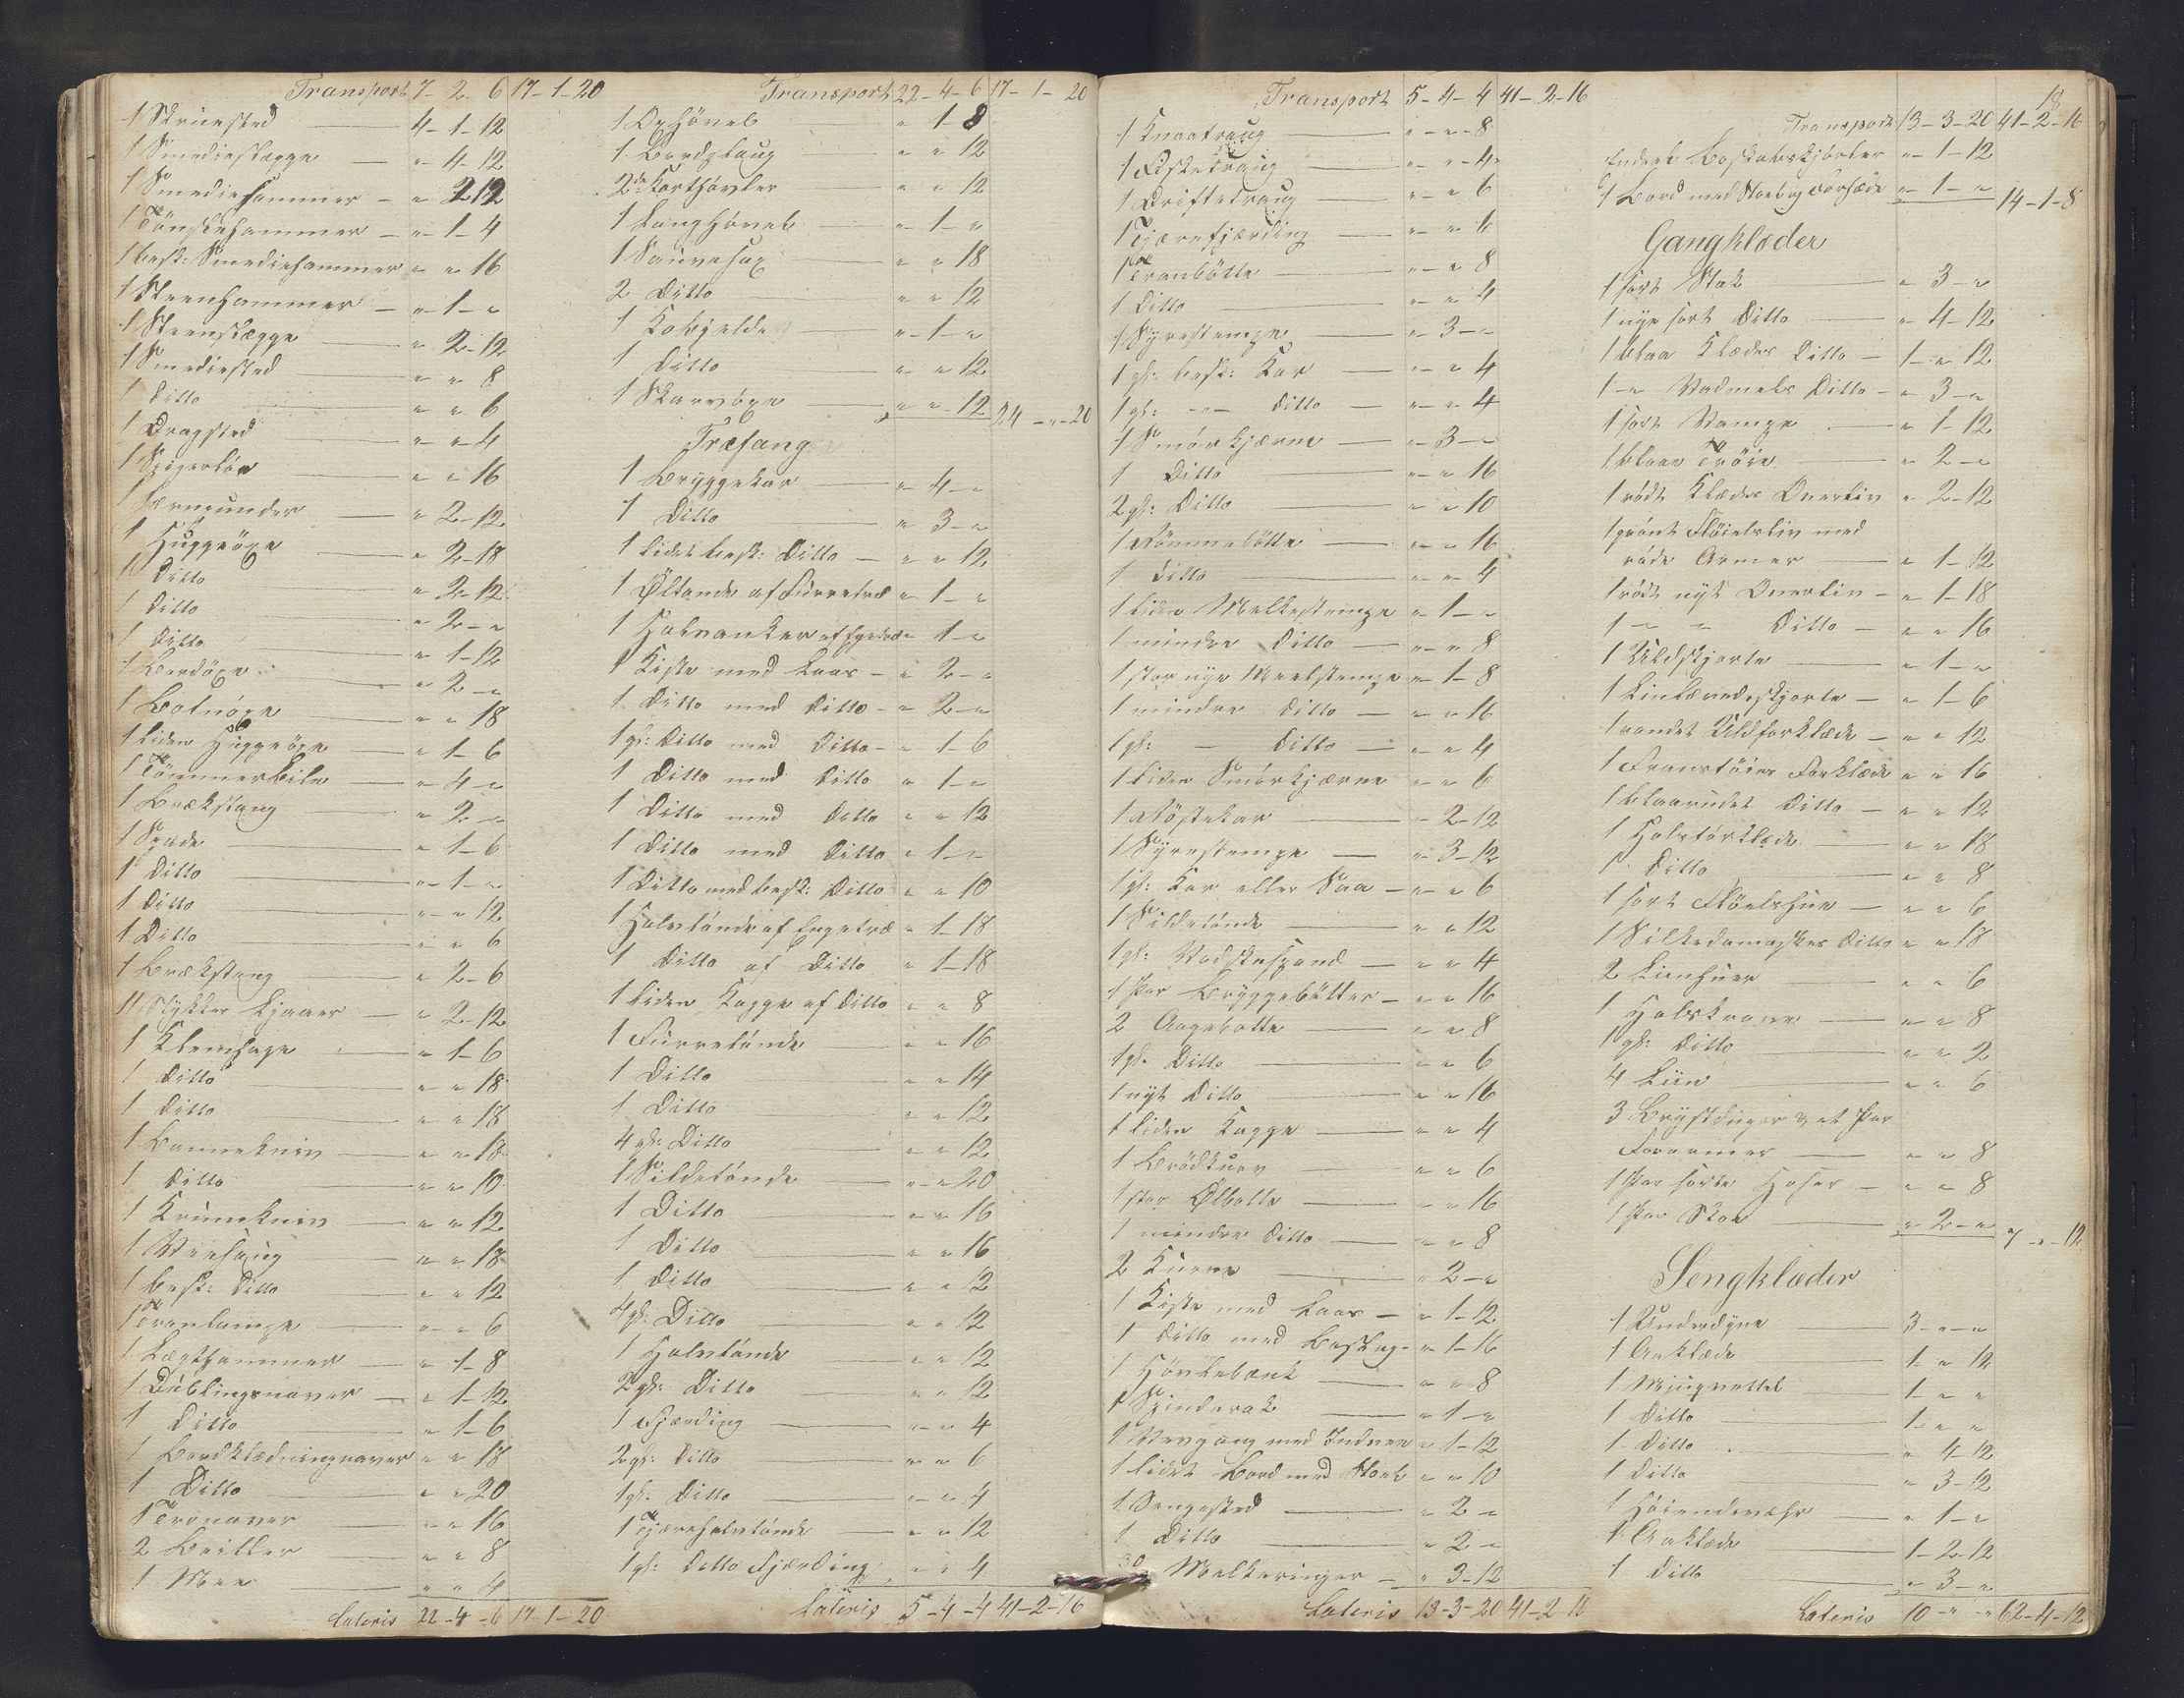 Transport 7- 2- 6 17- 1- 20
1 Skruested 4- 1- 12
1 Smedieslægge " 4- 12
1 Smediehammer " 2 12
1 Tønskehammer " 1- 4
1 besk: Smediehammer " " 16
1 Steenhammer " 1- "
1 Steenslægge " 2- 12
1 Smediested " " 8
1 Ditto " " 6
1 Dragsted " " 4
1 " " 16
1 " 2- 12
1 Huggeøxe " 2- 18
1 Ditto " 2- 12
1 Ditto " 2- "
1 Ditto " 1- 12
1 Bredøxe " 2- "
1 Botnøxe " " 18
1 liden Huggeøxe " 1- 6
1 Tømmerbile " 4- "
1 Brækstang " 2- "
1 Spade " 1- 6
1 Ditto " 1- "
1 Ditto " " 12
1 Ditto " " 6
1 Brækstang " 2- 6
11 Stykker Ljaaer " 2- 12
1 Klemsage " 1- 6
1 Ditto " " 18
1 Ditto " " 18
1 Bannekniv " " 18
1 Ditto " " 10
1 Krumkniv " " 12
1 " " 18
1 besk: Ditto " " 12
1 Tranlampe " " 6
1 Lægthammer " 1- 8
1 Dublingsnaver " 1- 12
1 Ditto " 1- 6
1 Bordklædningnaver " " 18
1 Ditto " " 20
1 Trønaver " " 16
2 Beitler " " 8
1 " " 4
Lateris 22- 4- 6 17- 1- 20
Transport 22- 4- 6 17- 1- 20
1 Oxhøvel " 1- 8
1 " " 12
2de Korthøvler " " 12
1 Langhøvel " 1- "
1 Sauesax " " 18
2 Ditto " " 12
1 Kobjelde " 1- "
1 Ditto " " 12
1 Skarvøxe " " 12 24- "- 20
Træfang
1 Bryggekar " 4- "
1 Ditto " 3- "
1 lidet besk: Ditto " " 12
1 Øltønde af Furretræ " 1- "
1 Halvanker af Egetræ " 1- "
1 Kiste med Laas " 2- "
1 Ditto med Ditto " 2- "
1 gl: Ditto med Ditto " 1- 6
1 Ditto med Ditto " 1- "
1 Ditto med Ditto " " 12
1 Ditto med Ditto " 1- "
1 Ditto med besk: Ditto " " 10
1 Halvtønde af Eegetræ " 1- 18
1 Ditto af Ditto " 1- 18
1 liden Kagge af Ditto " " 8
1 Furretønde " " 16
1 Ditto " " 14
1 Ditto " " 12
4 gl: Ditto " " 12
1 Sildetønde " " 20
1 Ditto " " 16
1 Ditto " " 16
1 Ditto " " 12
4 gl: Ditto " " 12
1 Halvtønde " " 12
2 gl: Ditto " " 12
1 Fjærding " " 4
2 gl: Ditto " " 6
1 gl: Ditto " " 4
1 Tjærehalvtønde " " 12
1 gl: Ditto Fjærding " " 4
Lateris 5- 4- 4 41- 2- 16
Transport 5- 4- 4 41- 2- 16
1 Knaatraug " " 8
1 Fisketraug " " 4
1 Driftetraug " " 6
1 Tjærefjærding " " 6
1 Tranbøtte " " 8
1 Ditto " " 4
1 Syrestampe " 3- "
1 gl: besk: Kar " " 4
1 gl: " Ditto " " 4
1 Smørkjærne " 3- "
1 Ditto " " 16
2 gl: Ditto " " 10
1 Rømmebøtte " " 16
1 Ditto " " 4
1 liden Melkestampe " 1- "
1 mindre Ditto " " 8
1 stor nye Meelstampe " 1- 8
1 mindre Ditto " " 16
1 gl: - Ditto " " 4
1 liden Smørkjærne " " 6
1 Røstekar " 2- 12
1 Syrestampe " 3- 12
1 gl: Kar eller Saa " " 6
1 Sildetønde " " 12
1 gl: Vadskespand " " 4
1 Par Bryggebøtter " " 16
2 " " 8
1 gl. Ditto " " 6
1 nyt Ditto " " 16
1 liden Kagge " " 4
1 Brødkurv " " 6
1 stor Ølbolle " " 16
1 mindre Ditto " " 8
2 Kurve " 2- "
1 Kiste med Laas " 1- 12
1 Ditto med Beslag " 1- 16
1 Høvlebænk " " 8
1 Spinderok " 1- "
1 Vevgang med " 1- 12
1 lidet Bord med Stoel " " 10
1 Sengested " 2- "
1 Ditto " 2- "
30 Melkeringer " 3- 12
Lateris 13- 3- 20 41- 2- 16
18
Transport 13- 3- 20 41- 2- 16
" 1- 12
1 Bord med Stoel og " 1- " 14- 1- 8
Gangklæder
1 sort Stak " 3- "
1 nye sort Ditto " 4- 12
1 blaa Klædes Ditto 1- " 12
1 " Vadmels Ditto " 3- "
1 sort Stampe " 1- 12
1 blaae Trøie " 2- "
1 rødt Klædes Overliv " 2- 12
1 grønt Fløielsliv med
røde Ærmer " 1- 12
1 rødt nyt Overliv " 1- 18
1 " " Ditto " " 16
1 Uldskjorte " 1- "
1 Linlærredsskjorte " 1- 6
1 randet Uldforklæde " " 12
1 Franstøies Forklæde " " 16
1 blaarudet Ditto " " 12
1 Halstørklæde " " 18
1 Ditto " " 8
1 sort Fløelshue " " 6
1 Silkedamaskes Ditto " " 18
2 Liinhuer " " 6
1 Halskrave " " 8
1 gl: Ditto " " 2
4 Liin " " 6
3 Brystduger & et Par
Forærmer " " 8
1 Par sorte Hoser " " 8
1 Par Skoe " 2- " 7- "- 12
Sengklæder
1 Underdyne 3- "- "
1 Aaklæde 1- " 12
1 1- " "
1 Ditto 1- " "
1 Ditto " 4- 12
1 Ditto " 3- 12
1 Høiendevahr " 1- "
1 Aaklæde 1- 2- 12
1 Ditto " 3- "
Lateris 10- "- " 62- 4- 12